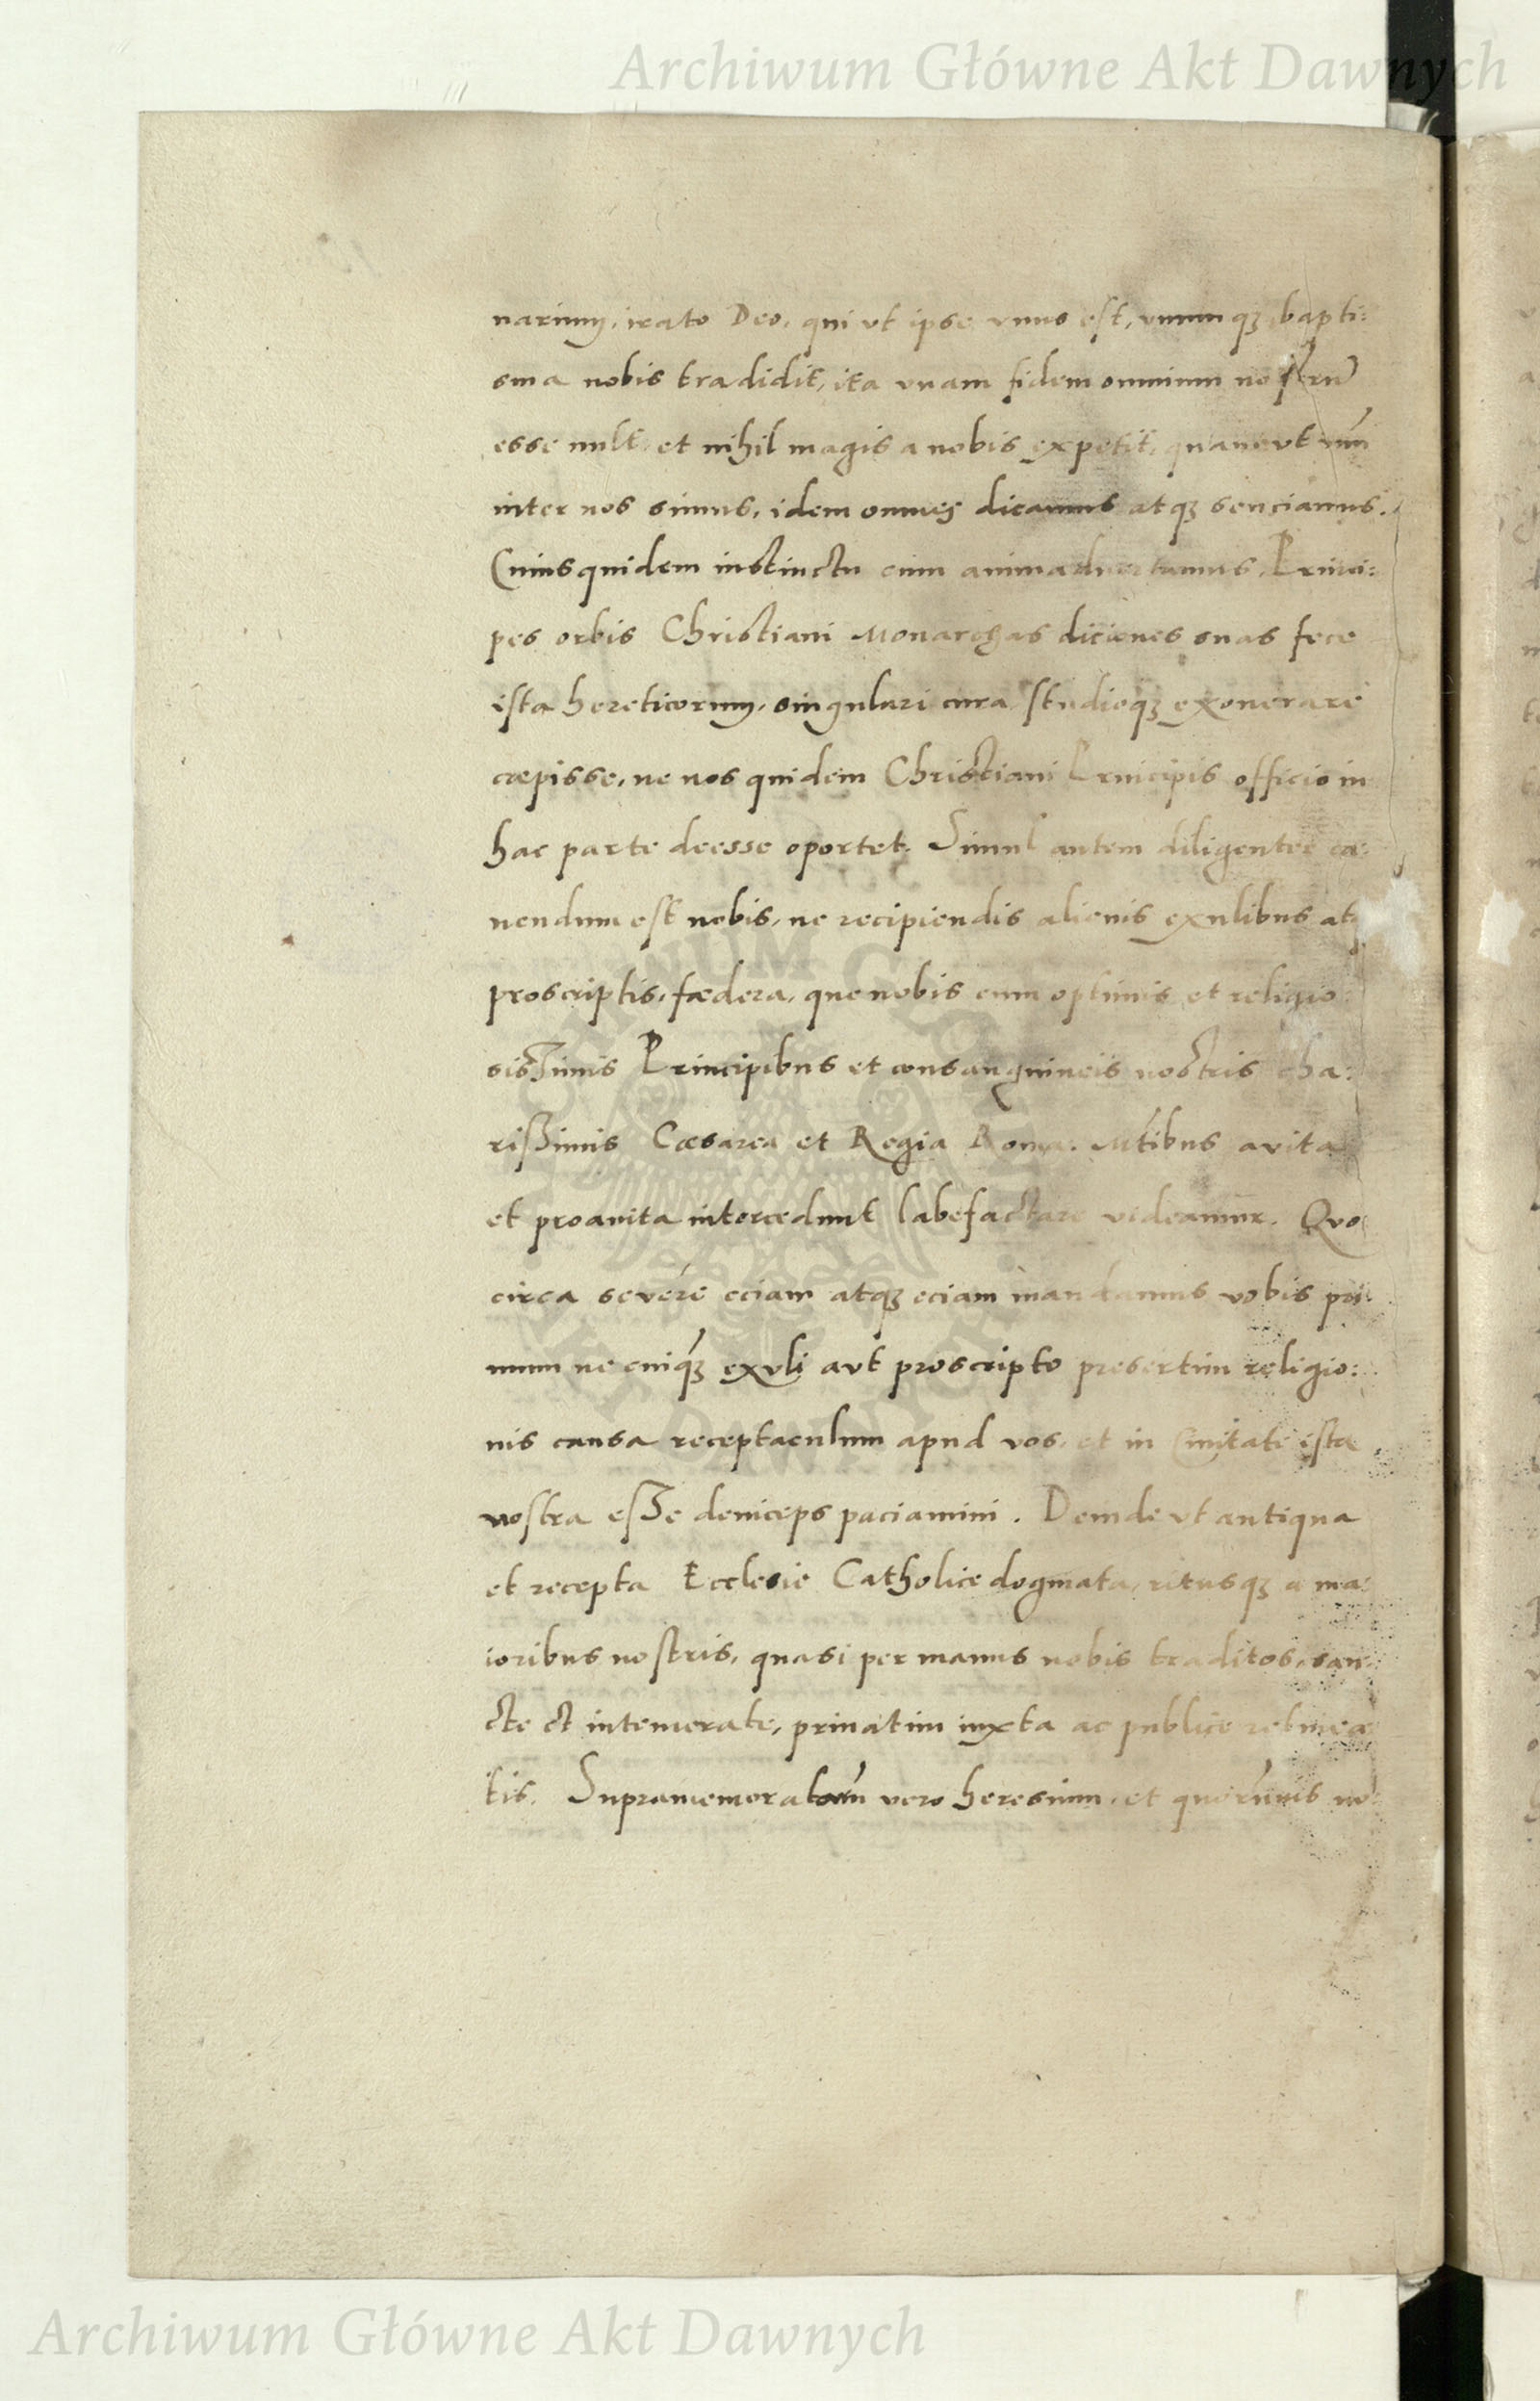 Archiwum Główne Akt Dawnych
narium, irato Deo, qui vt ipse vnus est, vnumq₃ bapti:
sma nobis tradidit, ita vnam fidem omnium nostru͂
esse uult et nihil magis a nobis expetit, quam vt
inter nos simus, idem omnes dicamus atq₃ senciamus.
Cuius quidem instinctu cum animaduertamus, Princi:
pes orbis Christiani Monarchas diciones suas fece
ista hereticorum, singulari cura studioq₃ exonerare
cœpisse, ne nos quidem Christiani Principis officio in
hac parte deesse oportet. Simul autem diligenter ca:
uendum est nobis, ne recipiendis alienis exulibus atq₃
proscriptis, fœdera, que nobis cum optimis et religio:
sissimis Principibus et consanguineis nostris cha:
rißimis Cæsarea et Regia Roma. Mtibus avita
et proauita intercedunt labefactare videamur. Quo
circa severe eciam atq₃ eciam mandamus vobis pri:
mum ne cuiq₃ exuli aut proscripto presertim religio:
nis causa receptaculum apud vos, et in Ciuitate ista
nostra eße deinceps paciamini. Deinde vt antiqua
et recepta Ecclesie Catholice dogmata, ritusq₃ a ma:
ioribus nostris, quasi per manus nobis traditos, san:
cte et intemerate, priuatim iuxta ac publice retinea:
tis. Supramemoratarum vero heresium, et quorumuis no:
Archiwum Główne Akt Dawnych